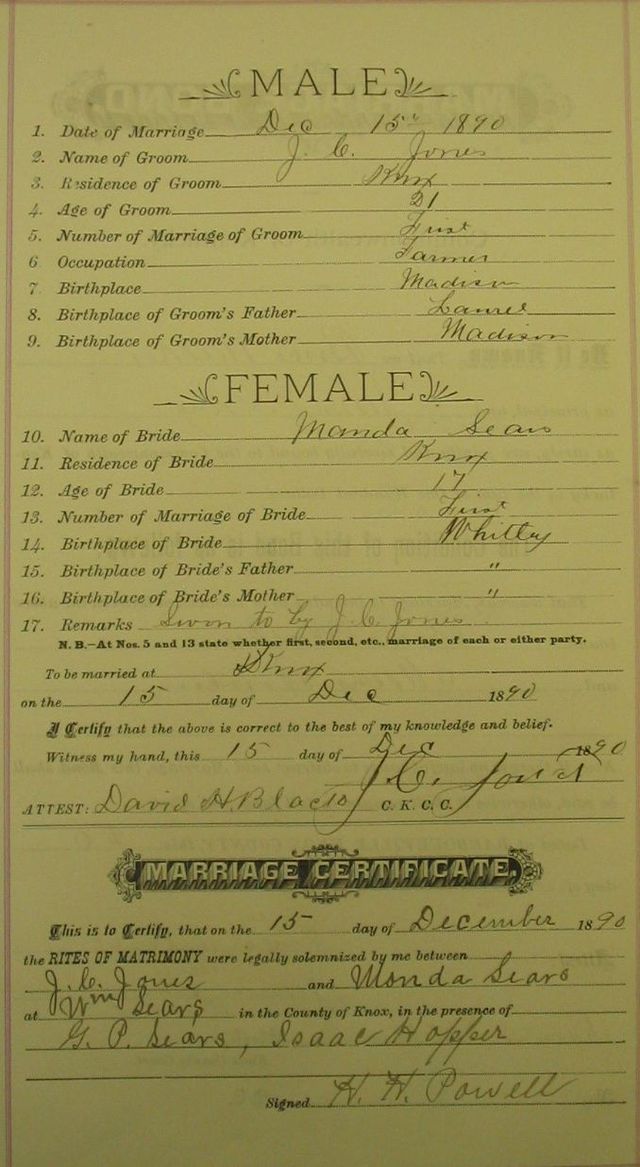 MALE
1. Date of Marriage Dec 15" 1890
2. Name of Groom J. C. Jones
3. Residence of Groom Knox
4. Age of Groom 21
5. Number of Marriage of Groom First
6 Occupation Farmer
7 Birthplace Madison
8. Birthplace of Groom's Father Laurel
9. Birthplace of Groom's Mother Madison
FEMALE
10. Name of Bride Manda Sears
11. Residence of Bride Knox
12. Age of Bride 17
13. Number of Marriage of Bride First
14. Birthplace of Bride Whitley
15. Birthplace of Bride's Father "
16. Birthplace of Bride's Mother "
17. Remarks Sworn to by J. C. Jones
N. B.—At Nos. 5 and 13 state whether first, second, etc., marriage of each or either party.
To be married at Knox
on the 15 day of Dec 1890
I Certify that the above is correct to the best of my knowledge and belief.
Witness my hand, this 15 day of Dec 1890
J. C. Jones
ATTEST: David H. C. K. C. C.
MARRIAGE CERTIFICATE.
This is to Certify, that on the 15 day of December 1890
the RITES OF MATRIMONY were legally solemnized by me between
J. C. Jones and Manda Sears
at Wm Sears in the County of Knox, in the presence of
G. P. Sears, Isaac Hopper
Signed H. H. Powell